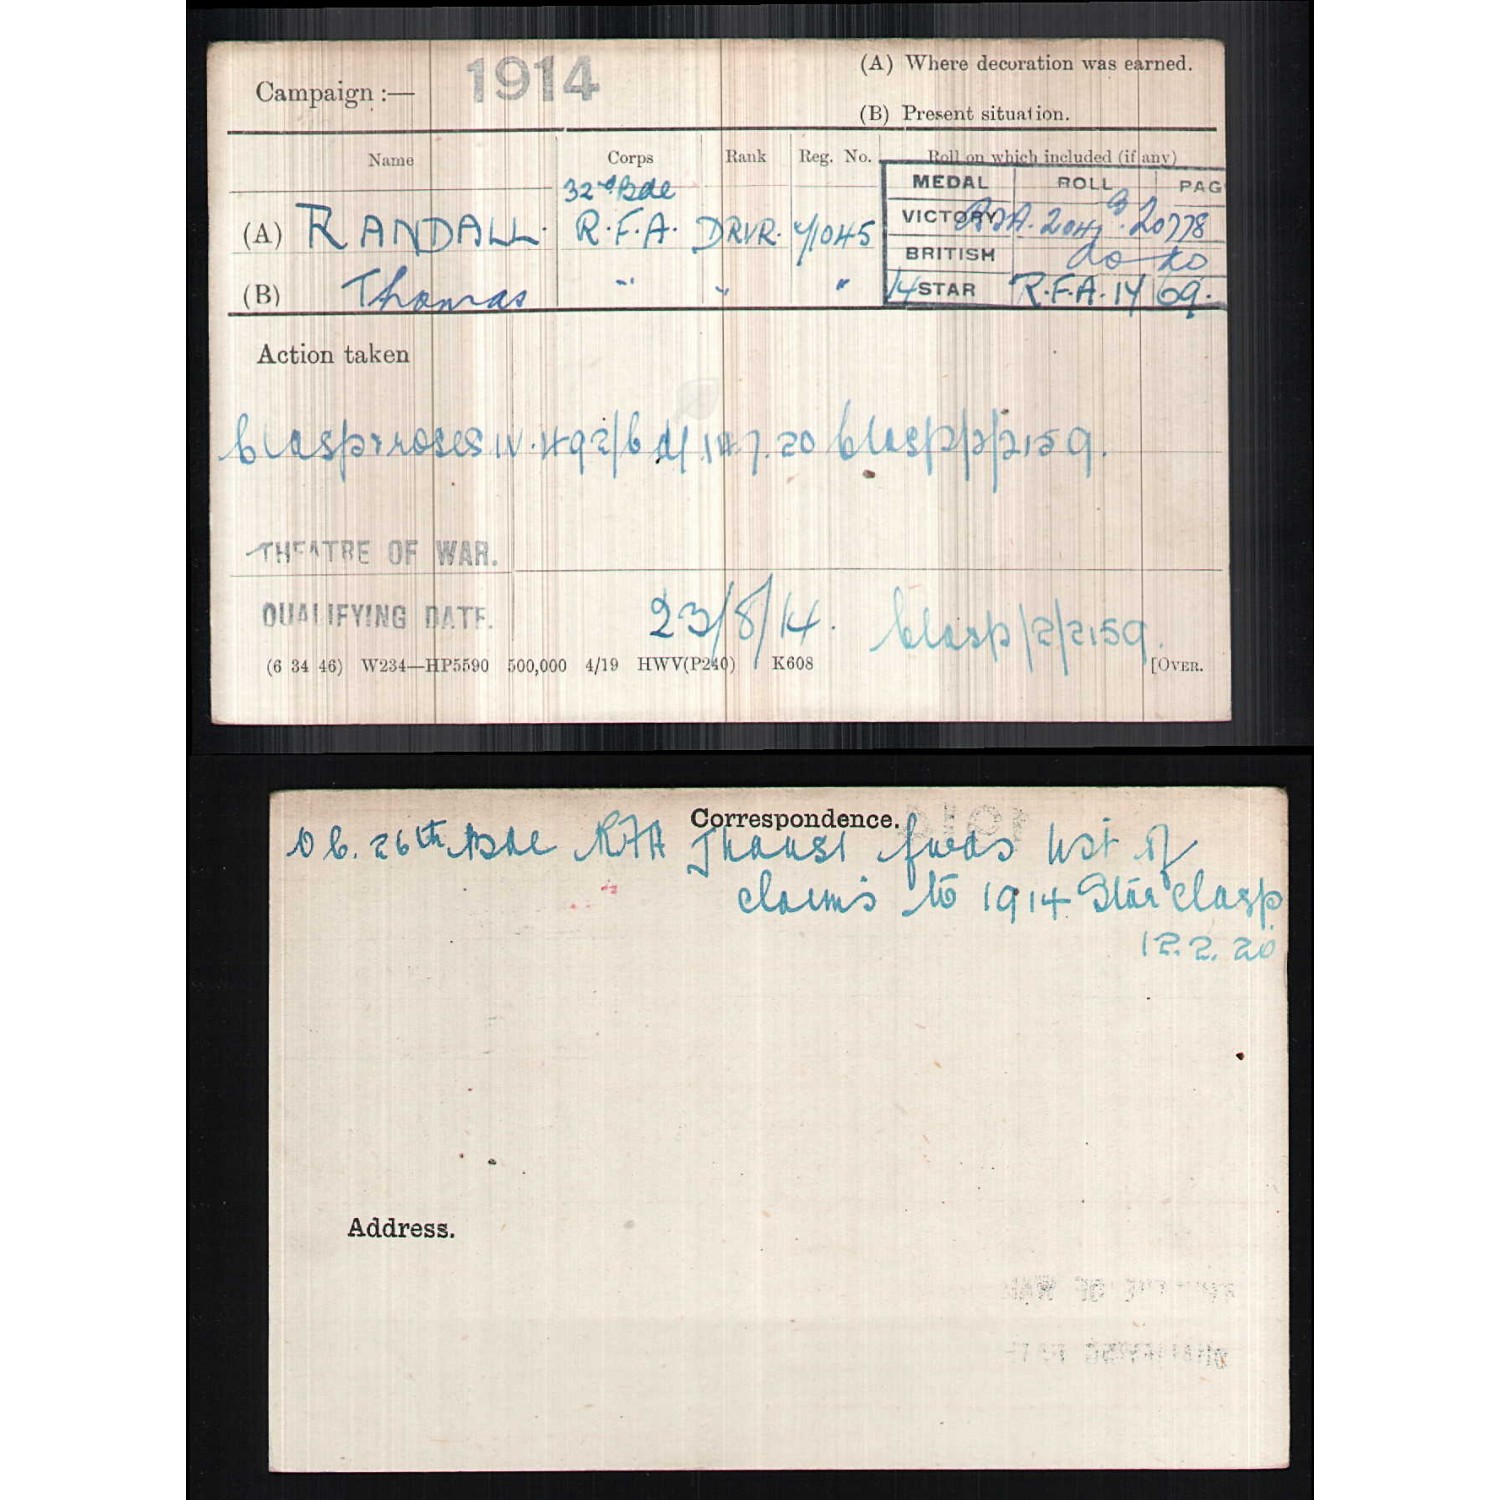 Campaign :— 1914
(A) Where decoration was earned.
(B) Present situation.
Name Corps Rank Reg. No. Roll on which included (if any)
32nd Bde
MEDAL ROLL PAG
(A) RANDALL. R.F.A. DRVR. 71045
VICTORY R.F.A. 204 B. 20778
BRITISH do do
(B) Thomas " " "
14 STAR R.F.A. 14 69.
Action taken
Clasp & roses IV. 492/6 d/ 14.7.20 Clasp/2/2159.
THEATRE OF WAR.
QUALIFYING DATE. 23/8/14. Clasp/2/2159.
(6 34 46) W234—HP5590 500,000 4/19 HWV(P240) K608 [OVER.
Correspondence.
O C. 26th Bde RFA fwds list of
claims to 1914 Star Clasp
12.2.20
Address.